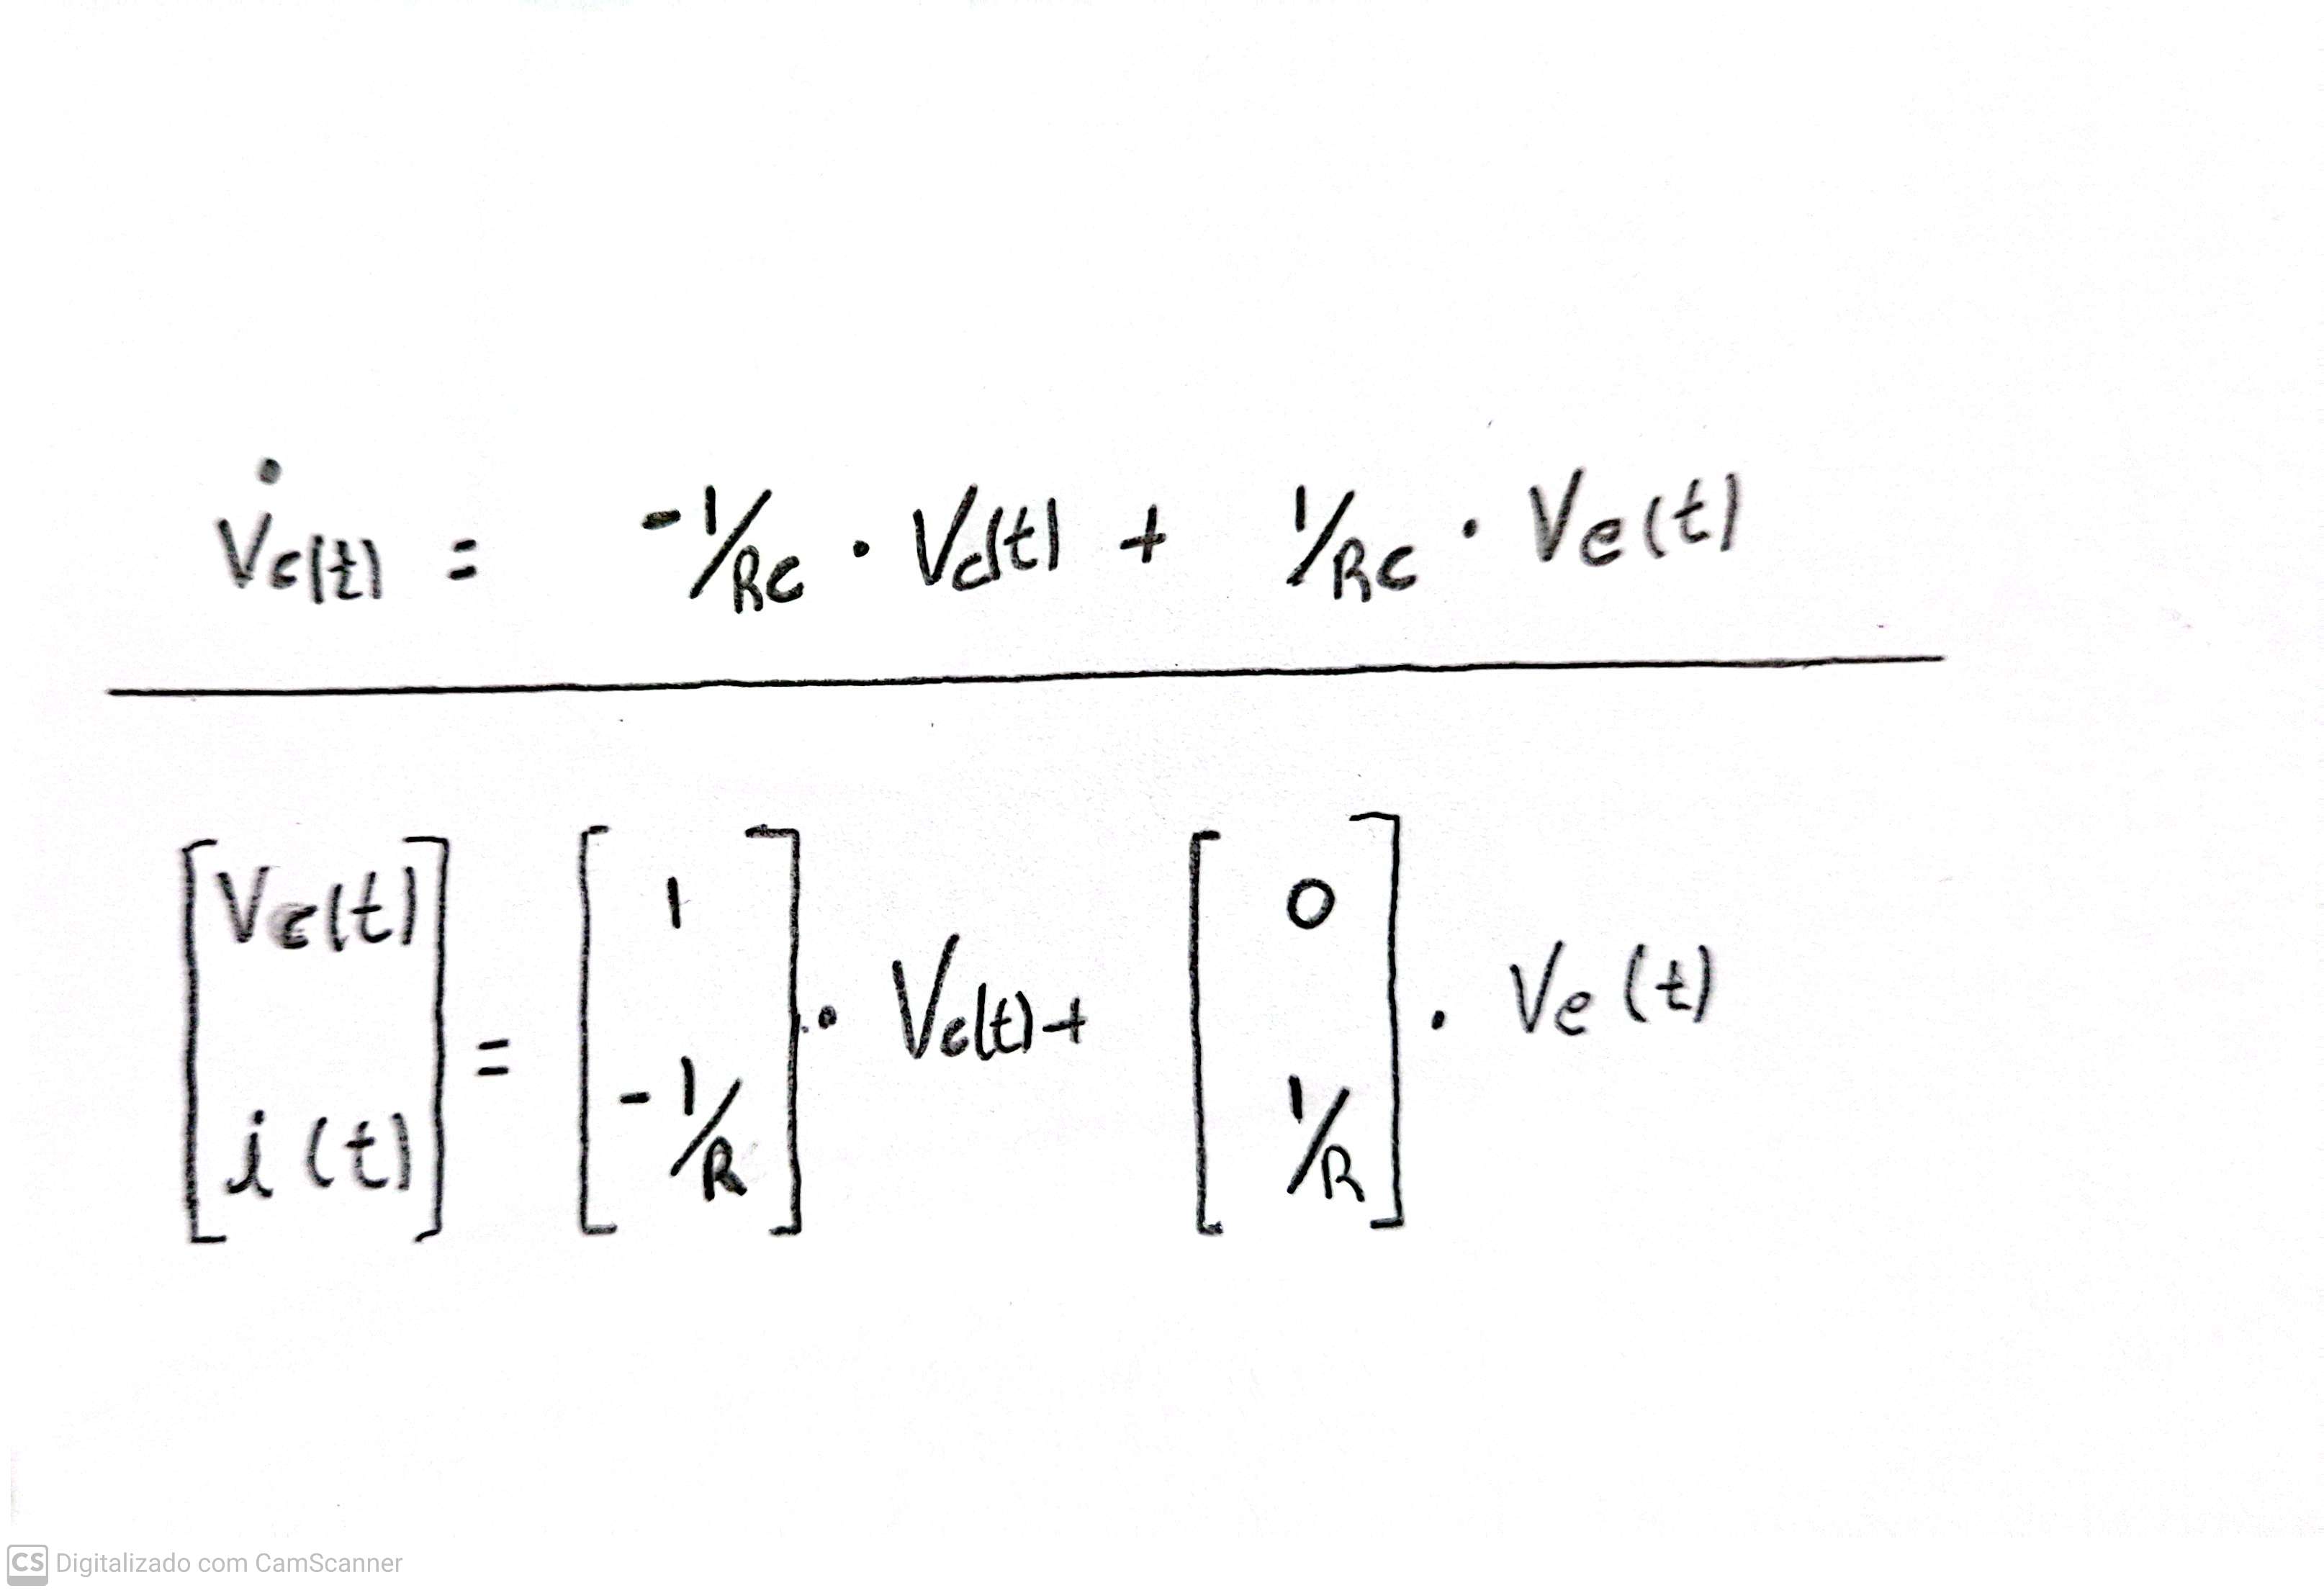 V̇c(t) = -1/RC · Vc(t) + 1/RC · Ve(t)
[Vc(t) i(t)] = [1 -1/R] · Vc(t) + [0 1/R] · Ve(t)
CS Digitalizado com CamScanner